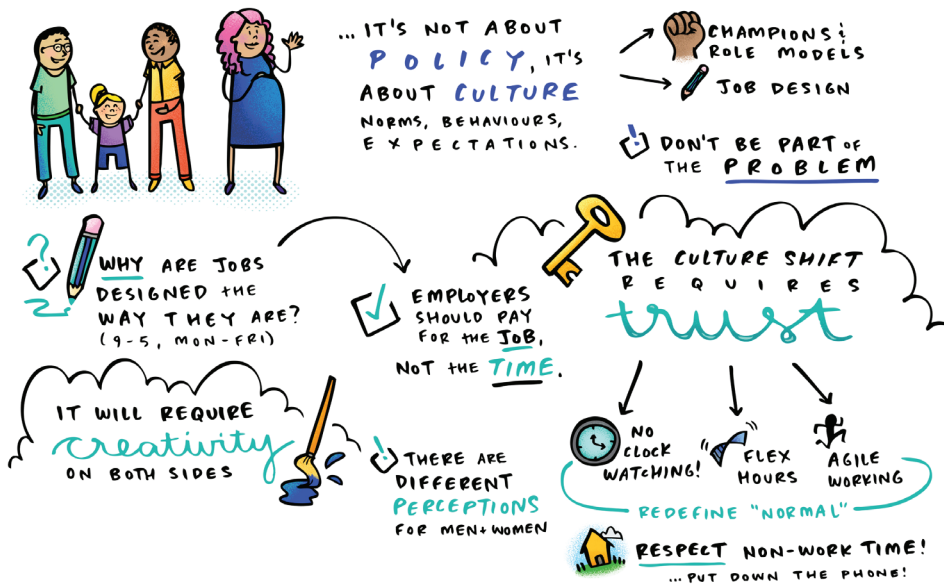 ...IT'S NOT ABOUT
POLICY, IT'S
ABOUT CULTURE
NORMS, BEHAVIOURS,
EXPECTATIONS.
CHAMPIONS &
ROLE MODELS
JOB DESIGN
! DON'T BE PART OF
THE PROBLEM
?
WHY ARE JOBS
DESIGNED THE
WAY THEY ARE?
(9-5, MON-FRI)
EMPLOYERS
SHOULD PAY
FOR THE JOB,
NOT THE TIME.
THE CULTURE SHIFT
REQUIRES
trust
IT WILL REQUIRE
creativity
ON BOTH SIDES
! THERE ARE
DIFFERENT
PERCEPTIONS
FOR MEN + WOMEN
NO
CLOCK
WATCHING!
FLEX
HOURS
AGILE
WORKING
REDEFINE "NORMAL"
RESPECT NON-WORK TIME!
...PUT DOWN THE PHONE!